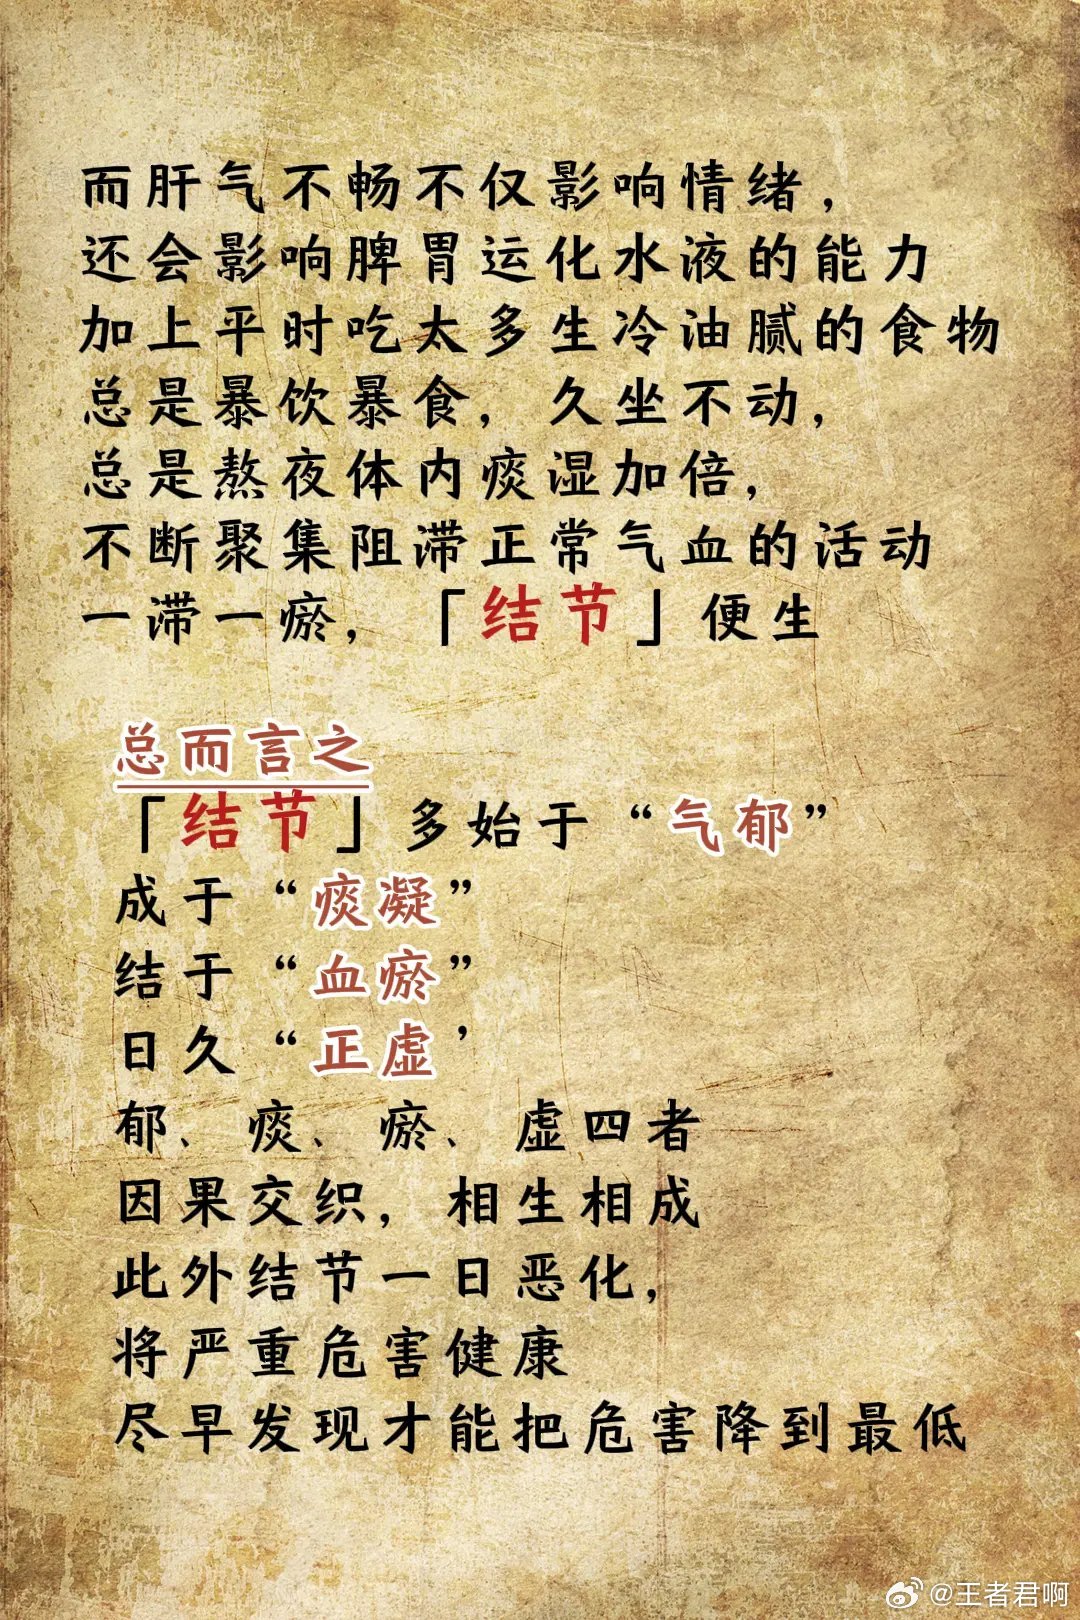 而肝气不畅不仅影响情绪，
还会影响脾胃运化水液的能力
加上平时吃太多生冷油腻的食物
总是暴饮暴食，久坐不动，
总是熬夜体内痰湿加倍，
不断聚集阻滞正常气血的活动
一滞一瘀，「结节」便生
总而言之
「结节」多始于“气郁”
成于“痰凝”
结于“血瘀”
日久“正虚’
郁、痰、瘀、虚四者
因果交织，相生相成
此外结节一日恶化，
将严重危害健康
尽早发现才能把危害降到最低
@王者君啊